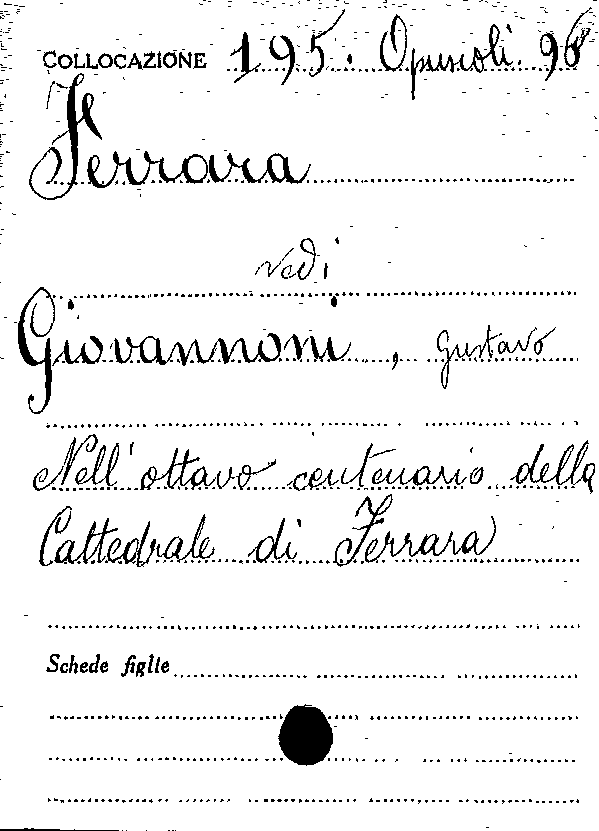 COLLOCAZIONE 195. Opuscoli. 96
Ferrara
vedi
Giovannoni, Gustavo
Nell'ottavo centenario della
Cattedrale di Ferrara
Schede figlie